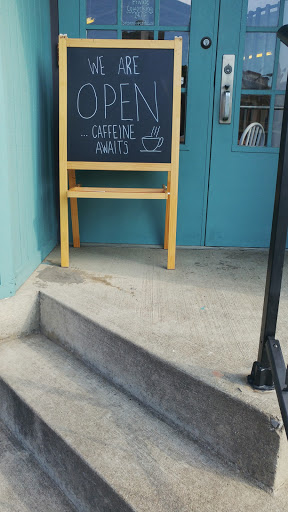 WE ARE
OPEN
... CAFFEINE
AWAITS